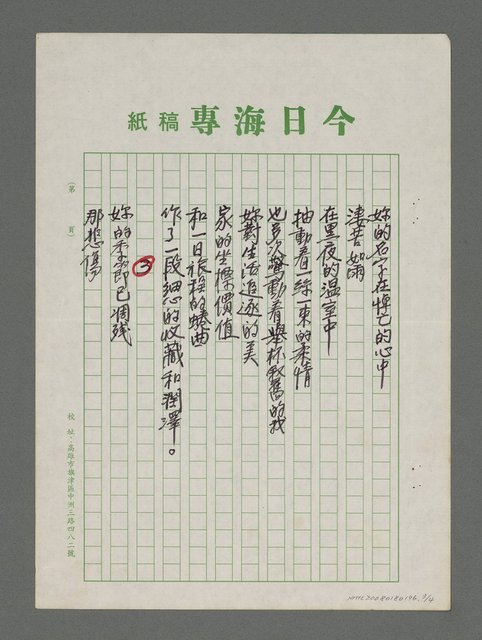 今日海專 稿紙
妳的名字在悼亡的心中
淒苦如雨
在黑夜的温室中
抽動着一絲一束的柔情
也多次驚動着舉杯敘舊的我
妳對生活追逐的美
家的坐標價值
和一日旅程的捲曲
作了一段細心的收藏和潤澤。
3
妳的季節已凋残
那悲傷
(第 頁)
校址：高雄市旗津區中洲三路四八二號
NMTL20080180196. 3/4